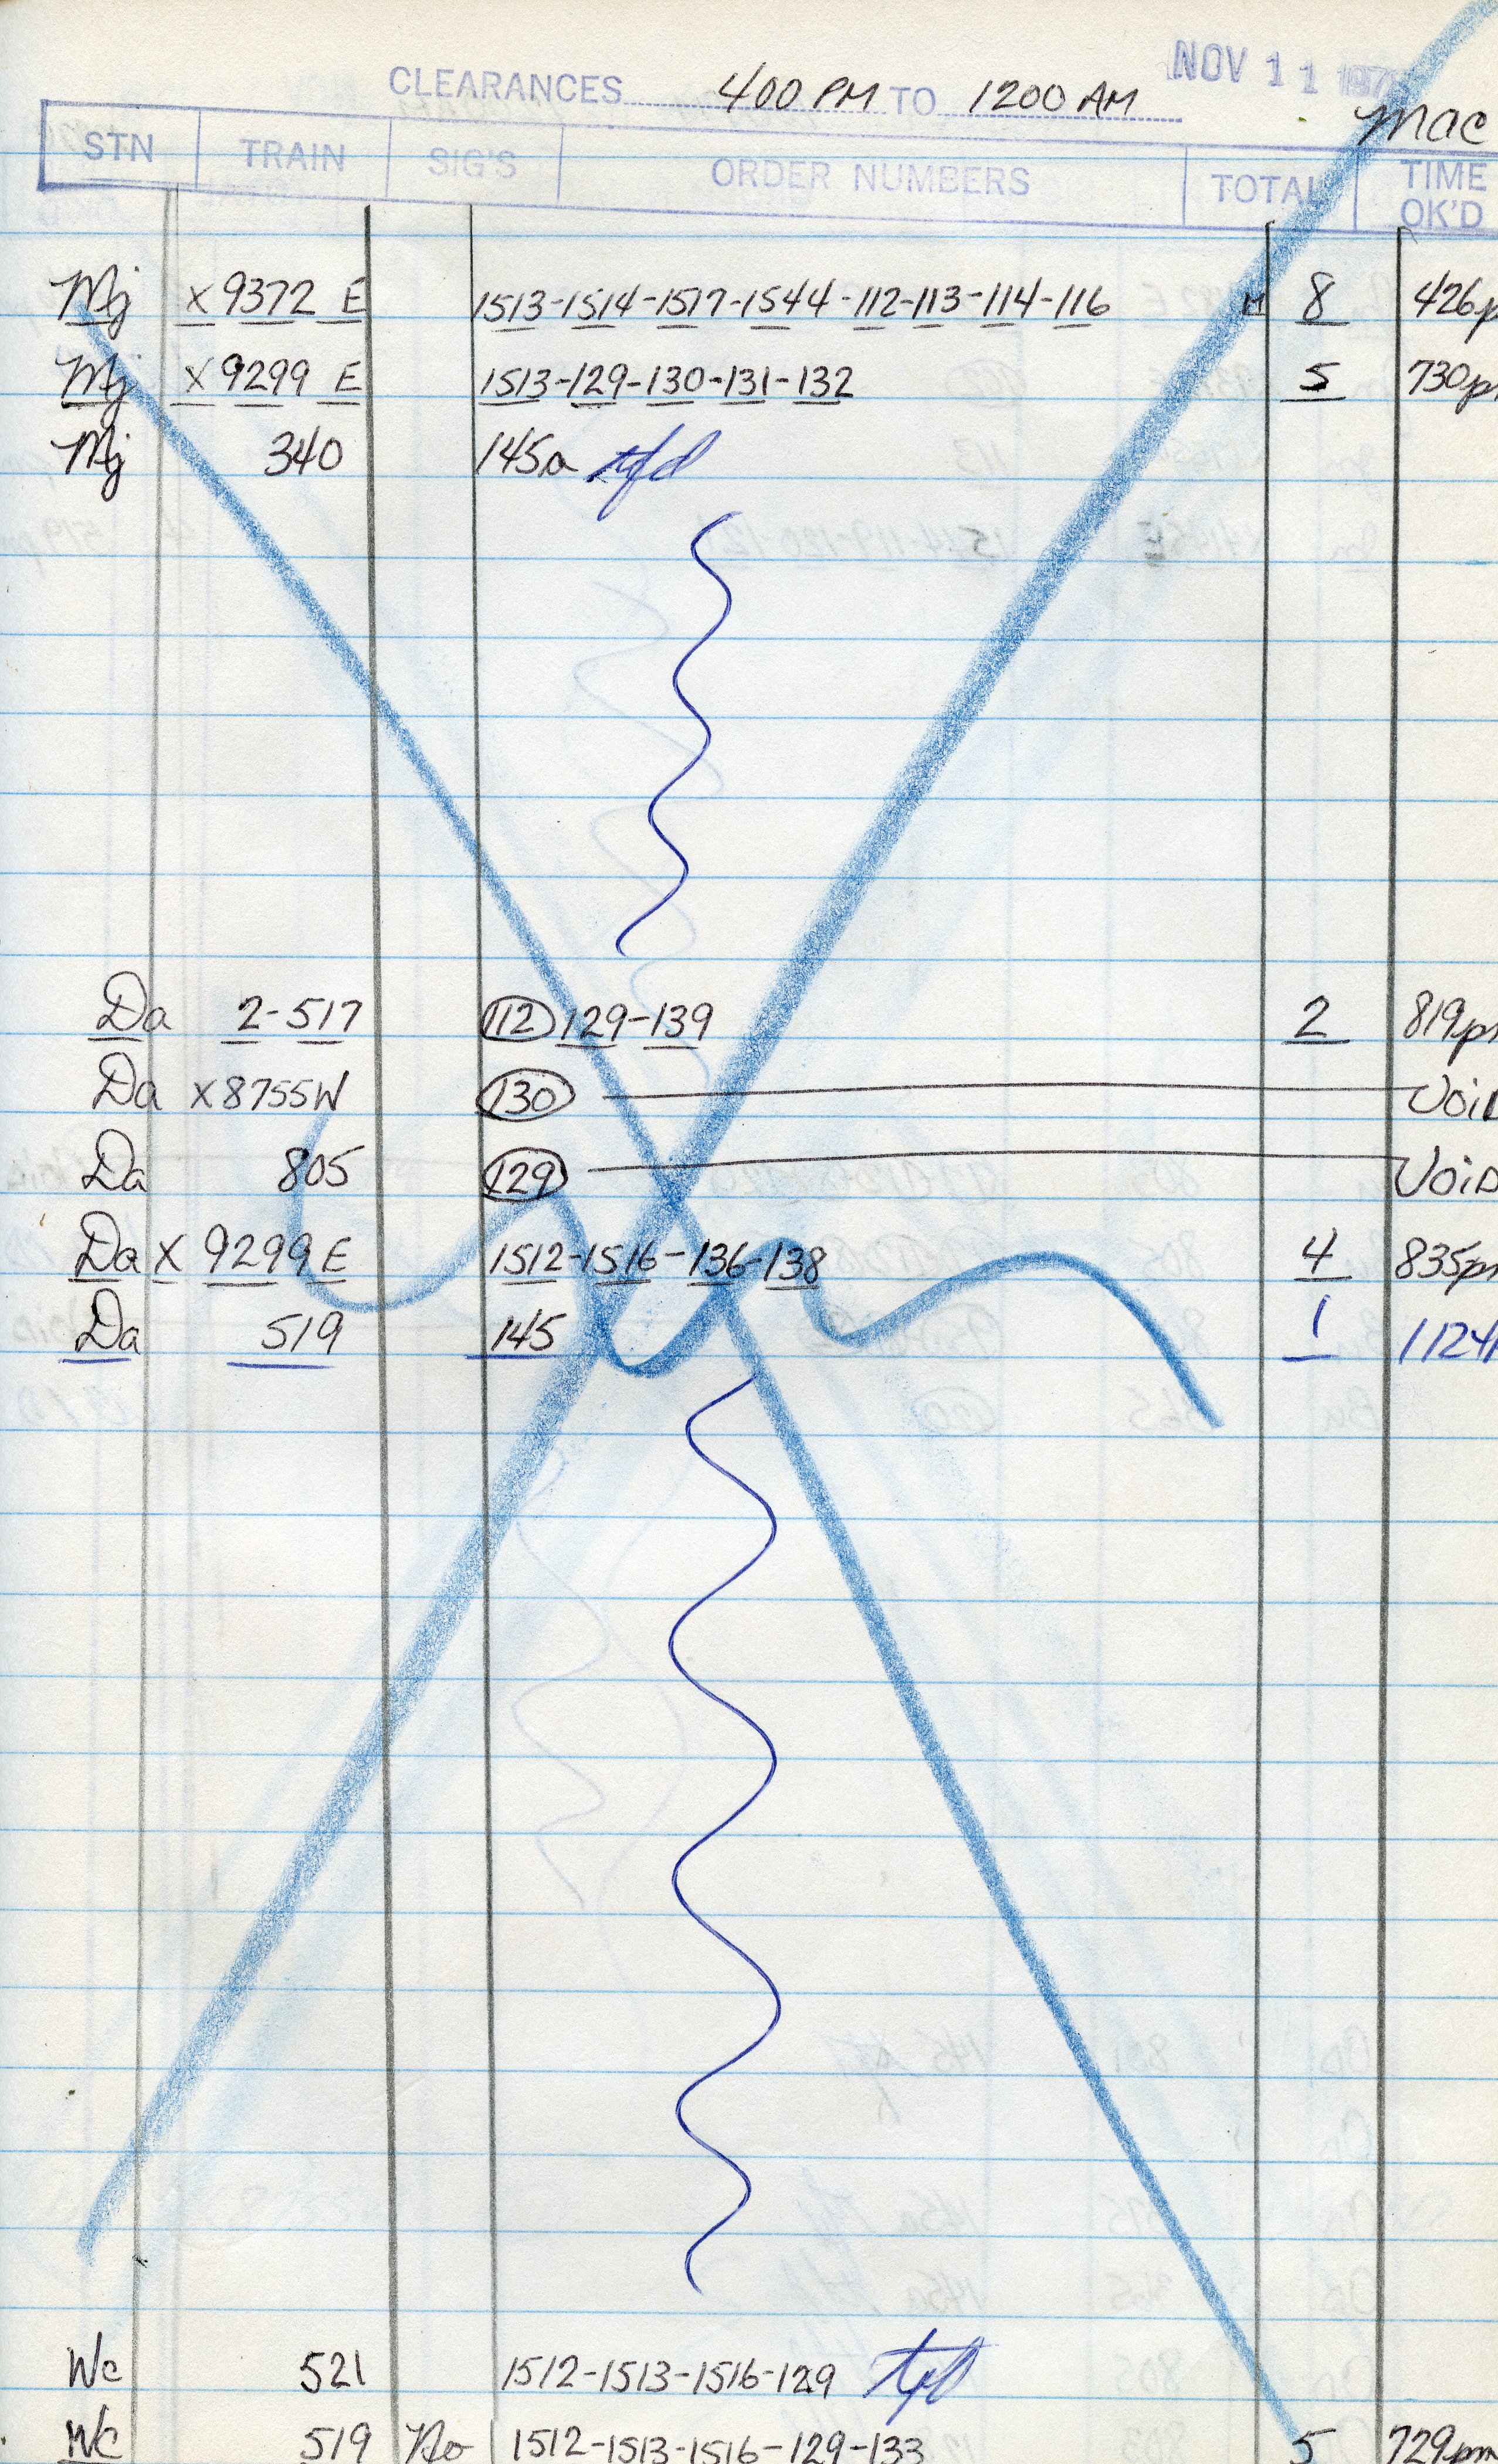 NOV 11
CLEARANCES 400 PM TO 1200 AM
mac
STN TRAIN SIG'S ORDER NUMBERS TOTAL TIME OK'D
Mj X 9372 E 1513-1514-1517-1544-112-113-114-116 H 8 426p
Mj X 9299 E 1513-129-130-131-132 5 730p
Mj 340 145a tfd
Da 2-517 112 129-139 2 819pm
Da X8755W 130 VOID
Da 805 129 VOID
Da X 9299 E 1512-1516-136-138 4 835pm
Da 519 145 1 1124
Wc 521 1512-1513-1516-129 tfd
Wc 519 No 1512-1513-1516-129-133 5 729pm